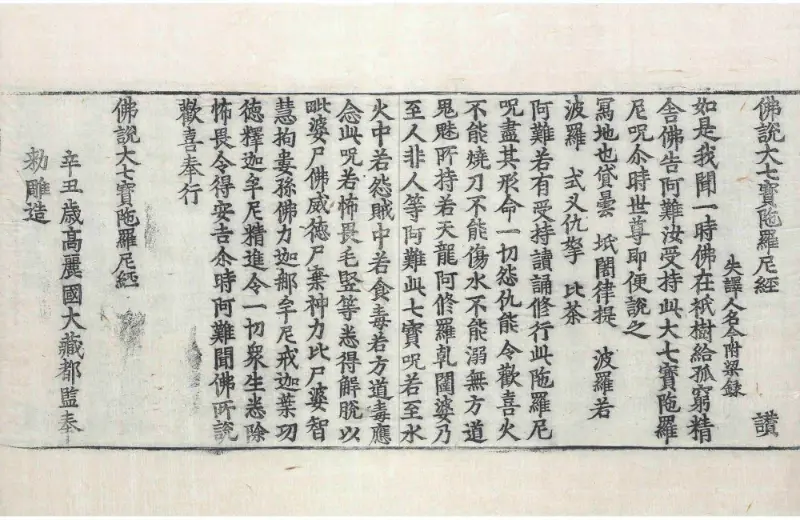 佛說大七寶陁羅尼經 讃
失譯人名今附梁錄
如是我聞一時佛在祇樹給孤窮精
舍佛告阿難汝受持此大七寶陁羅
尼呪尒時世尊即便說之
冩地也貸曇 坻闍律提 波羅若
波羅 式叉仇拏 比荼
阿難若有受持讀誦修行此陁羅尼
呪盡其形命一切怨仇能令歡喜火
不能燒刀不能傷水不能溺無方道
鬼魅所持若天龍阿修羅乹闥婆乃
至人非人等阿難此七寶呪若至水
火中若怨賊中若食毒若方道毒應
念此呪若怖畏毛竪等悉得解脫以
毗婆尸佛威德尸棄神力比尸婆智
慧拘婁孫佛力迦那牟尼戒迦葉功
德釋迦牟尼精進令一切衆生悉除
怖畏令得安吉尒時阿難聞佛所說
歡喜奉行
佛說大七寶陁羅尼經
辛丑歲高麗國大藏都監奉
勅雕造